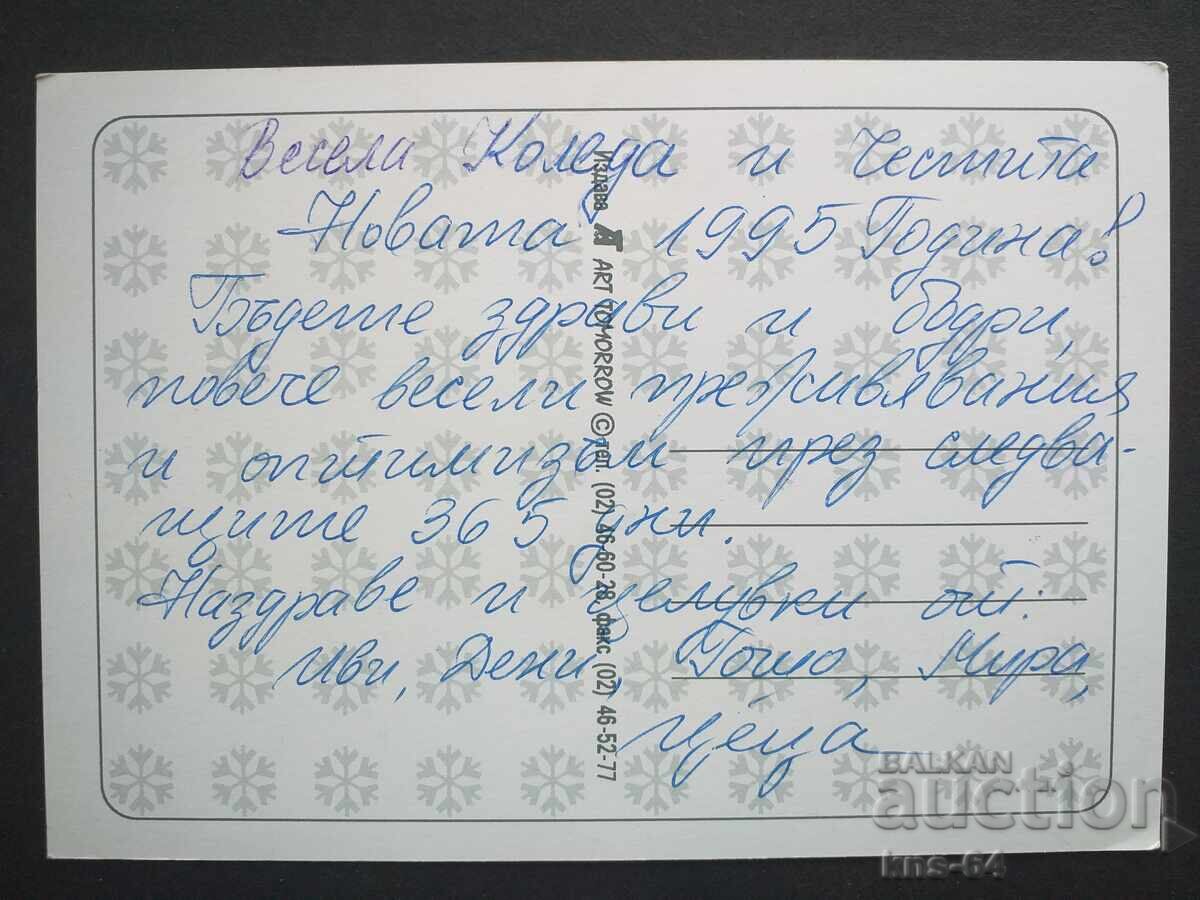 Весела Коледа и Честита
Новата 1995 Година!
Бъдете здрави и бодри,
повече весели преживявания
и оптимизъм през следва-
щите 365 дни.
Наздраве и целувки от:
Иви, Дени, Гошо, Мира,
Цеца
Издава A ART TOMORROW © тел. (02) 46-60-28, факс (02) 46-52-77
BALKAN
auction
kns-64